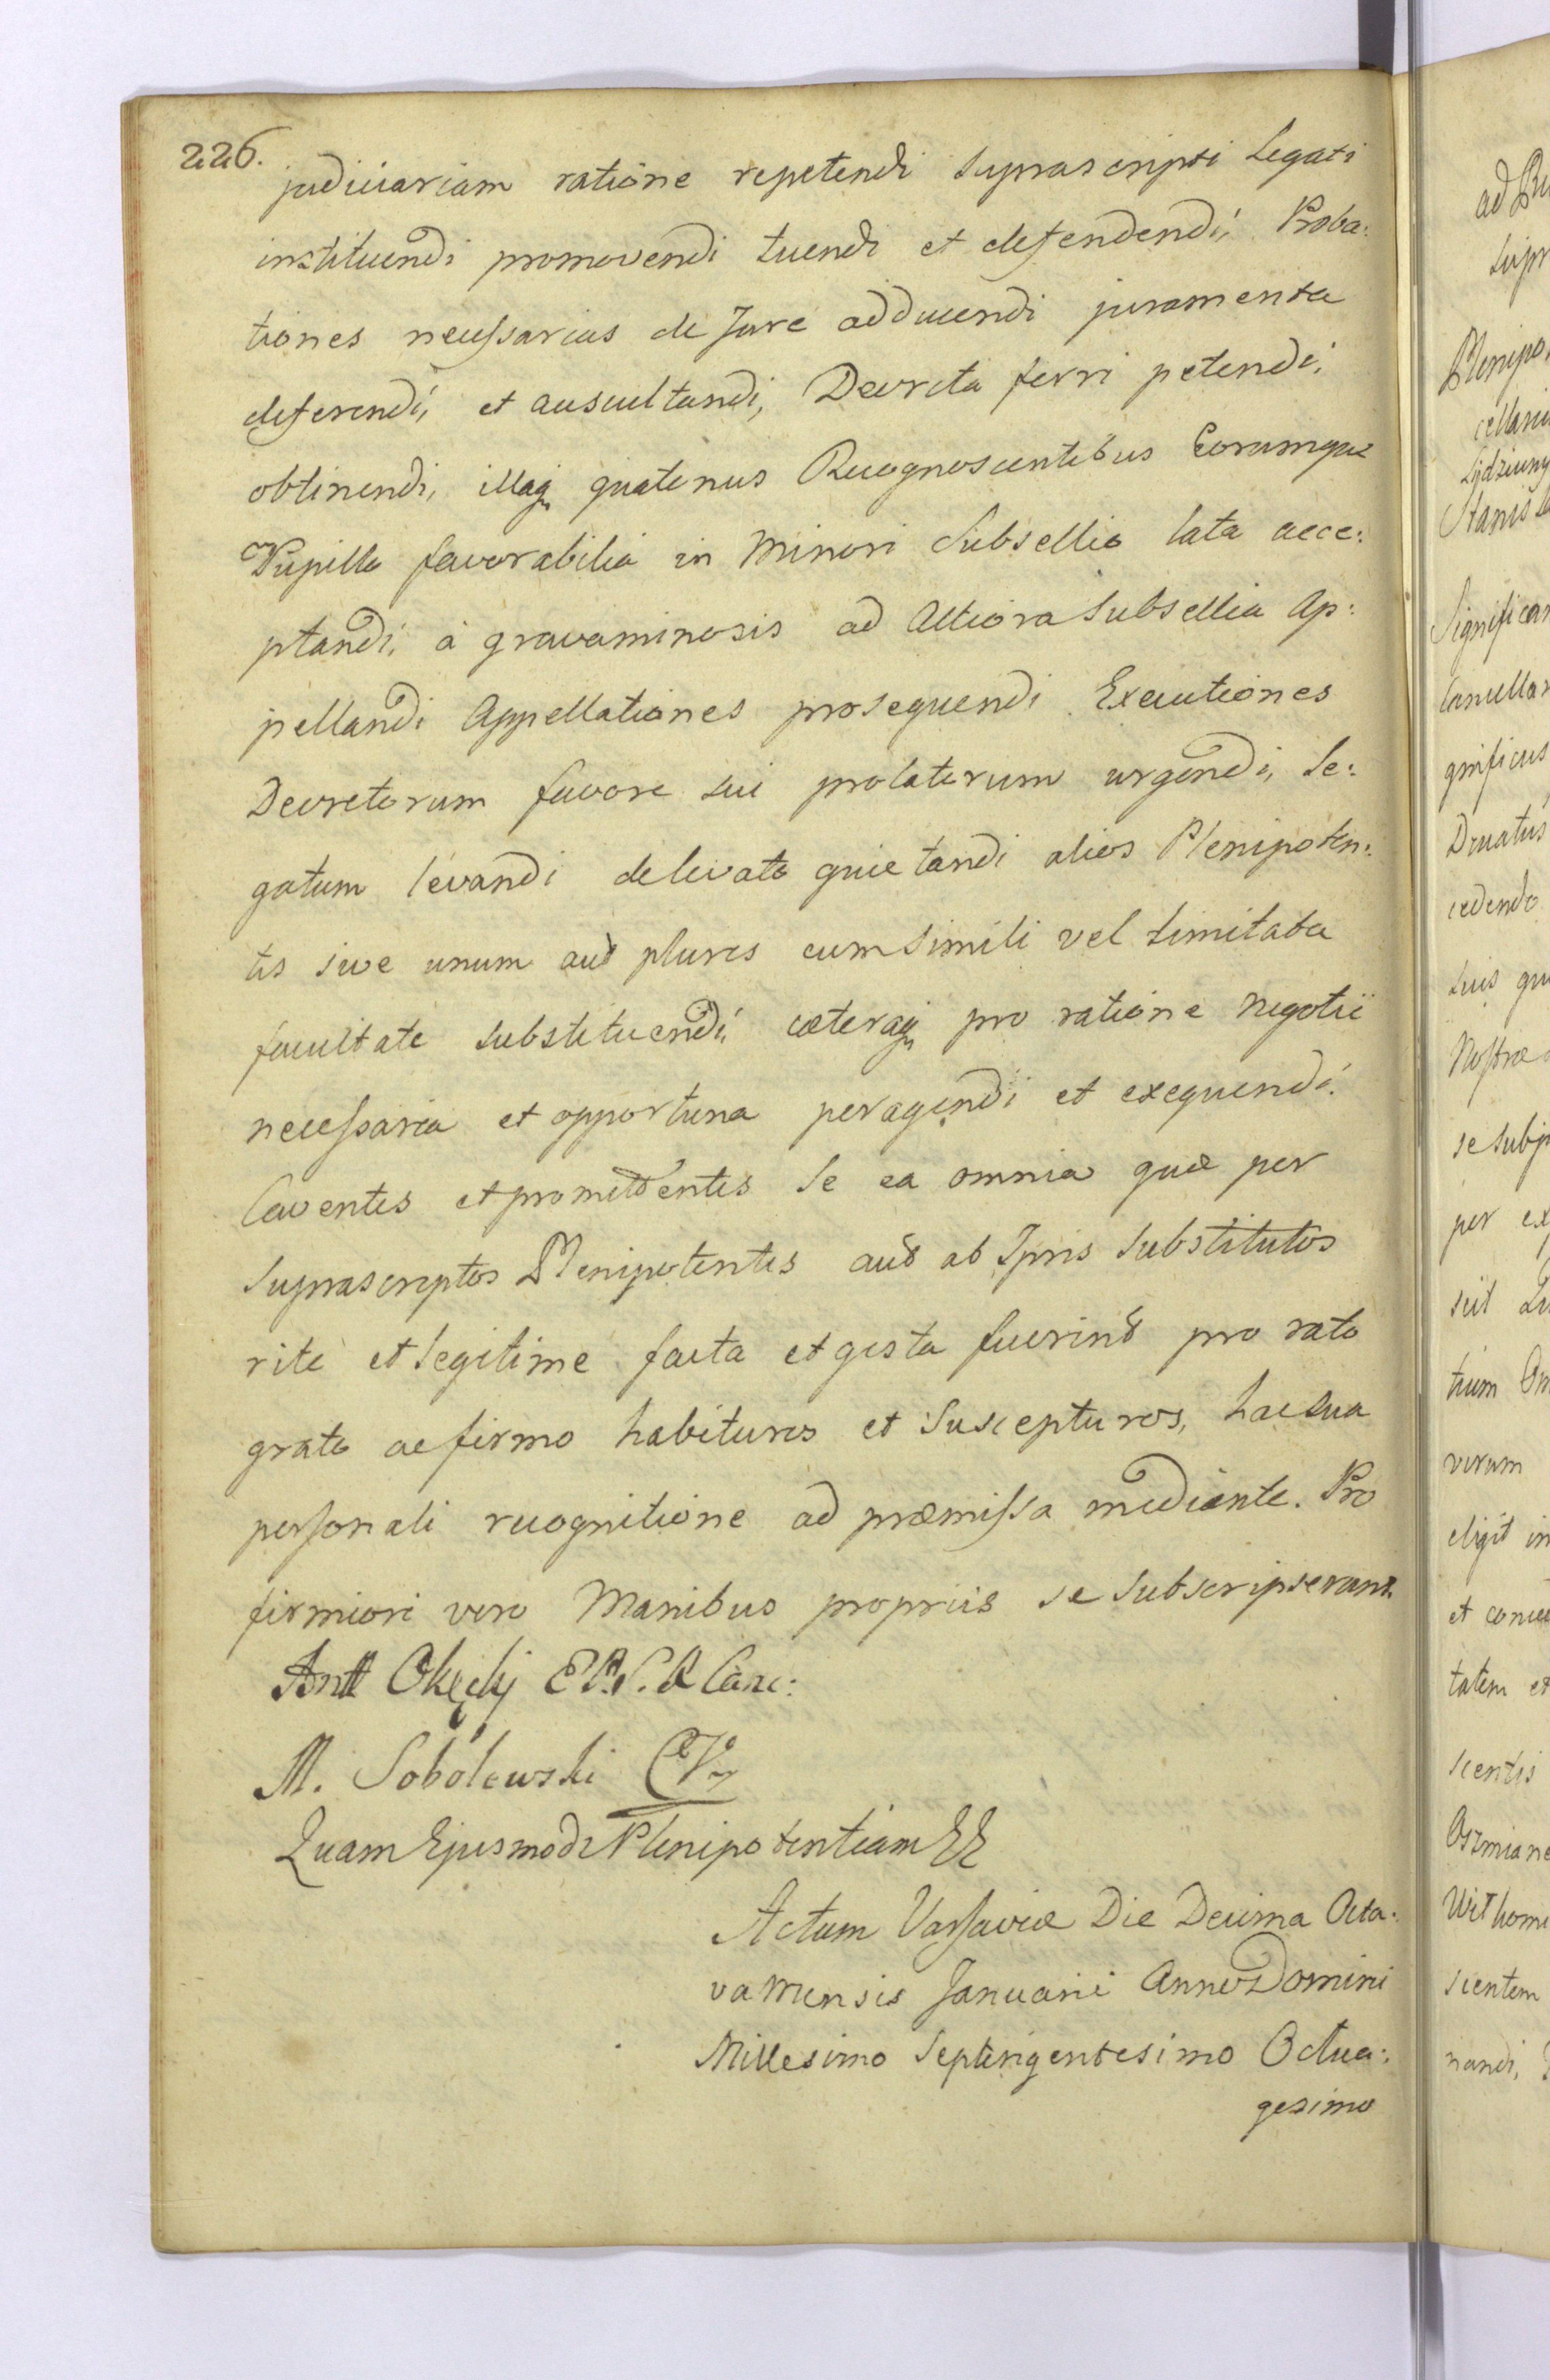 226.
judiciariam ratione repetendi suprascripti Legati
instituendi promovendi tuendi et defendendi, Proba:
tiones necessarias de Jure adducendi juramenta
deferendi, et auscultandi, Decreta ferri petendi,
obtinendi, illaq, quatenus Recognoscentibus Eorumque
Pupillo favorabilia in Minori Subsellio lata acce:
ptandi, à gravaminosis ad Altiora Subsellia Ap:
pellandi Appellationes prosequendi Executiones
Decretorum favore sui prolatorum urgendi, Le:
gatum levandi de levato quietandi alios Plenipoten:
tes sive unum aut plures cum simili vel limitata
facultate substituendi, cæteraq, pro ratione negotii
necessaria et opportuna peragendi et exequendi.
Caventes et promittentes se ea omnia quæ per
suprascriptos Plenipotentes aut ab Ipsis Substitutos
rite et legitime facta et gesta fuerint pro rato
grato ac firmo habituros et suscepturos, hac sua
personali recognitione ad præmissa mediante. Pro
firmiori vero Manibus propriis se subscripserant.
Ant Okęcki E P. C. R Canc:
M. Sobolewski CV
Quam Ejusmodi Plenipotentiam
Actum Varsaviæ Die Decima Octa:
va Mensis Januarii Anno Domini
Millesimo Septingentesimo Octua:
gesimo
ad
supr
Plenipo
cellari
Stanis
Significan
Cancellar
gnificus
cedendo
suis qu
Nostræ
se subj
per ex
sit
tium
virum
eligit in
et conce
tatem et
scentis
Oszmiane
Wit
scentem
nandi,